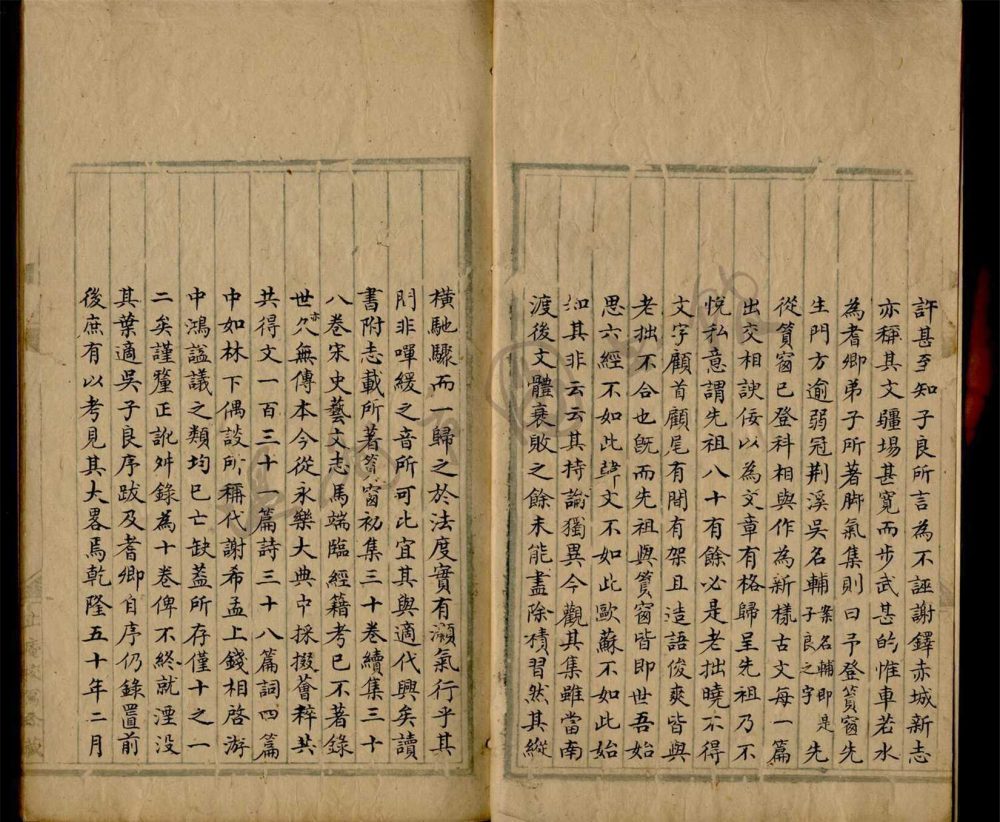 許甚至知子良所言為不誣謝鐸赤城新志
亦稱其文疆場甚寬而步武甚的惟車若水
為耆卿弟子所著脚氣集則曰予登篔窗先
生門方逾弱冠荆溪吳名輔案名輔即是子良之字先
從篔窗已登科相與作為新樣古文每一篇
出交相諛佞以為文章有格歸呈先祖乃不
悅私意謂先祖八十有餘必是老拙曉不得
文字顧首顧尾有間有架且造語俊爽皆與
老拙不合也既而先祖與篔窗皆即世吾始
思六經不如此韓文不如此歐蘇不如此始
知其非云云其持論獨異今觀其集雖當南
渡後文體衰敗之餘未能盡除積習然其縱
橫馳驟而一歸之於法度實有灝氣行乎其
間非嘽緩之音所可比宜其與適代興矣讀
書附志載所著篔窗初集三十卷續集三十
八卷宋史藝文志馬端臨經籍考已不著錄
世亦久無傳本今從永樂大典中採掇薈稡共
共得文一百三十一篇詩三十八篇詞四篇
中如林下偶談所稱代謝希孟上錢相啓游
中鴻謚議之類均已亡缺蓋所存僅十之一
二矣謹釐正訛舛錄為十卷俾不終就湮没
其葉適吳子良序跋及耆卿自序仍錄置前
後庶有以考見其大畧焉乾隆五十年二月